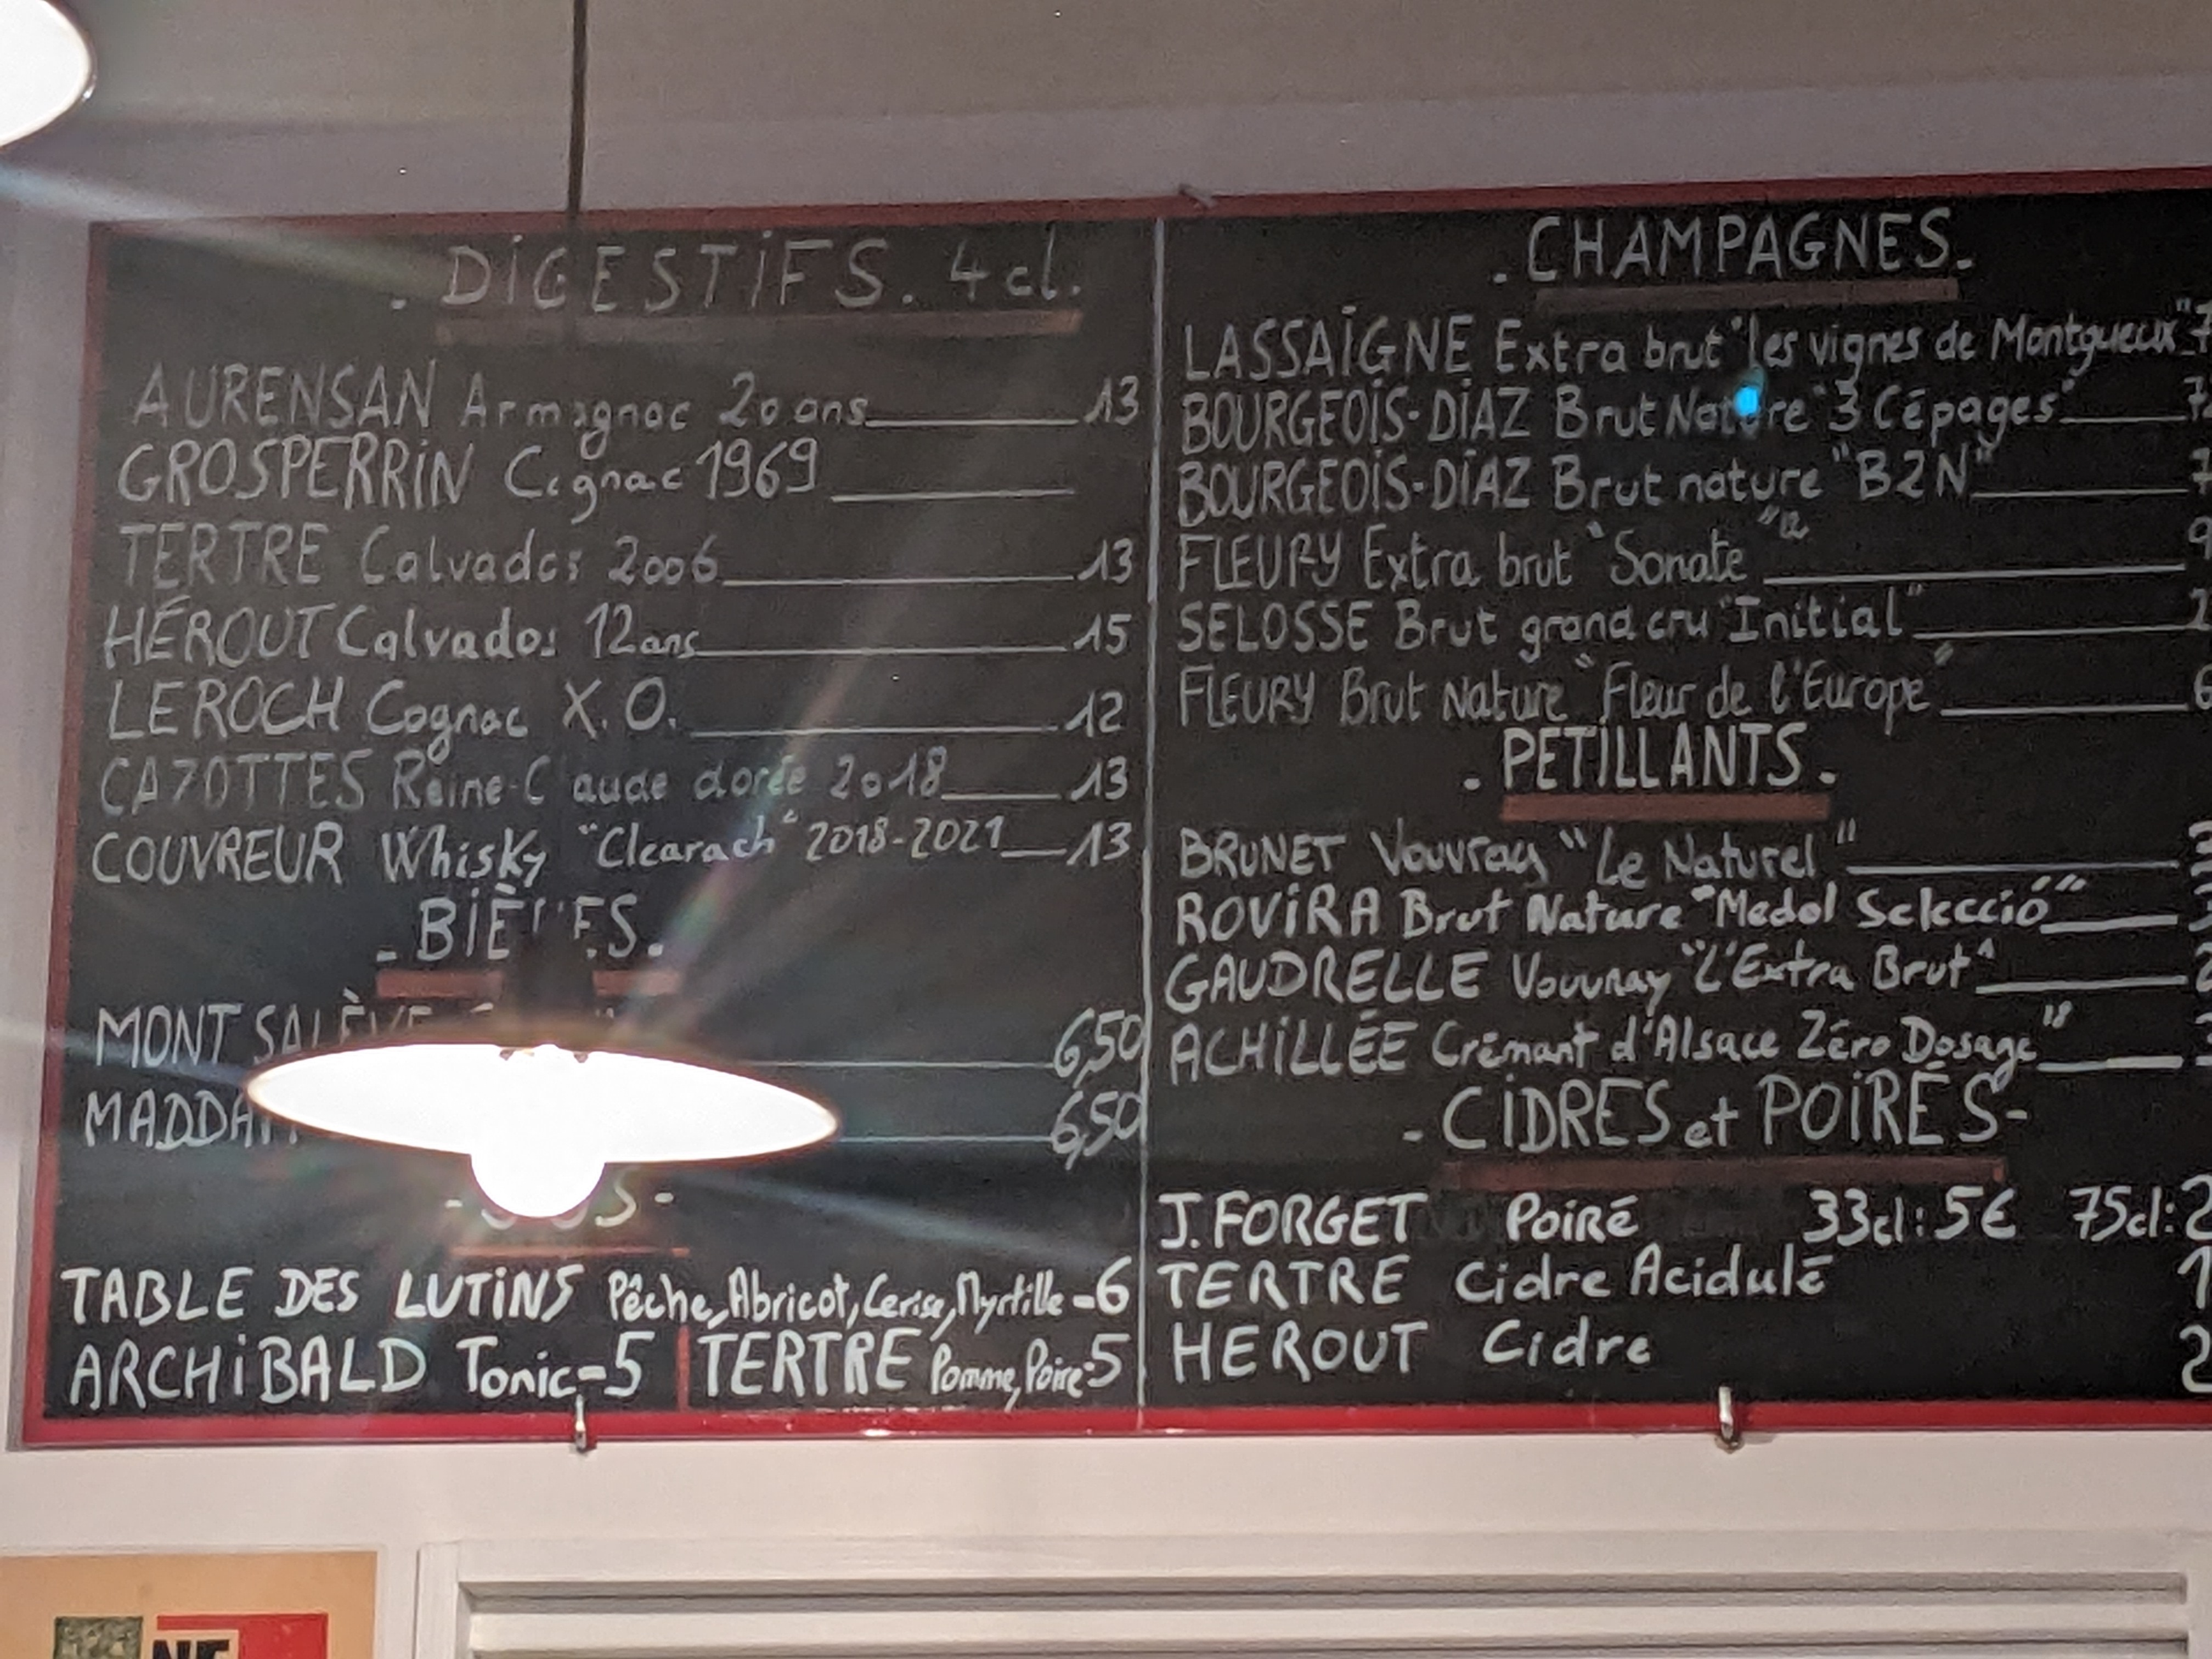 . DiGESTiFS. 4cl.
AURENSAN Armagnac 20 ans 13
GROSPERRiN Cognac 1969
TERTRE Calvados 2006 13
HÉROUT Calvados 12ans 15
LEROCH Cognac X.O. 12
CAZOTTES Reine-Claude dorée 2018 13
COUVREUR Whisky "Clearach" 2018-2021 13
- BIÈRES.
MONT SALÈVE 6,50
6,50
TABLE DES LUTiNS Pêche, Abricot, Cerise, Myrtille - 6
ARCHiBALD Tonic - 5 TERTRE Pomme, Poire - 5
. CHAMPAGNES.
LASSAiGNE Extra brut "les vignes de Montgueux"
BOURGEOiS-DiAZ Brut Nature "3 Cépages"
BOURGEOiS-DiAZ Brut nature "B2N"
FLEURY Extra brut "Sonate" "12
SELOSSE Brut grand cru "Initial"
FLEURY Brut Nature "Fleur de l'Europe"
. PETiLLANTS.
BRUNET Vouvray "Le Naturel"
ROViRA Brut Nature "Medol Selecció"
GAUDRELLE Vouvray "L'Extra Brut"
ACHiLLÉE Crémant d'Alsace Zéro Dosage "18
- CiDRES et POiRÉS -
J. FORGET Poiré 33cl: 5€ 75cl:
TERTRE Cidre Acidulé
HEROUT Cidre